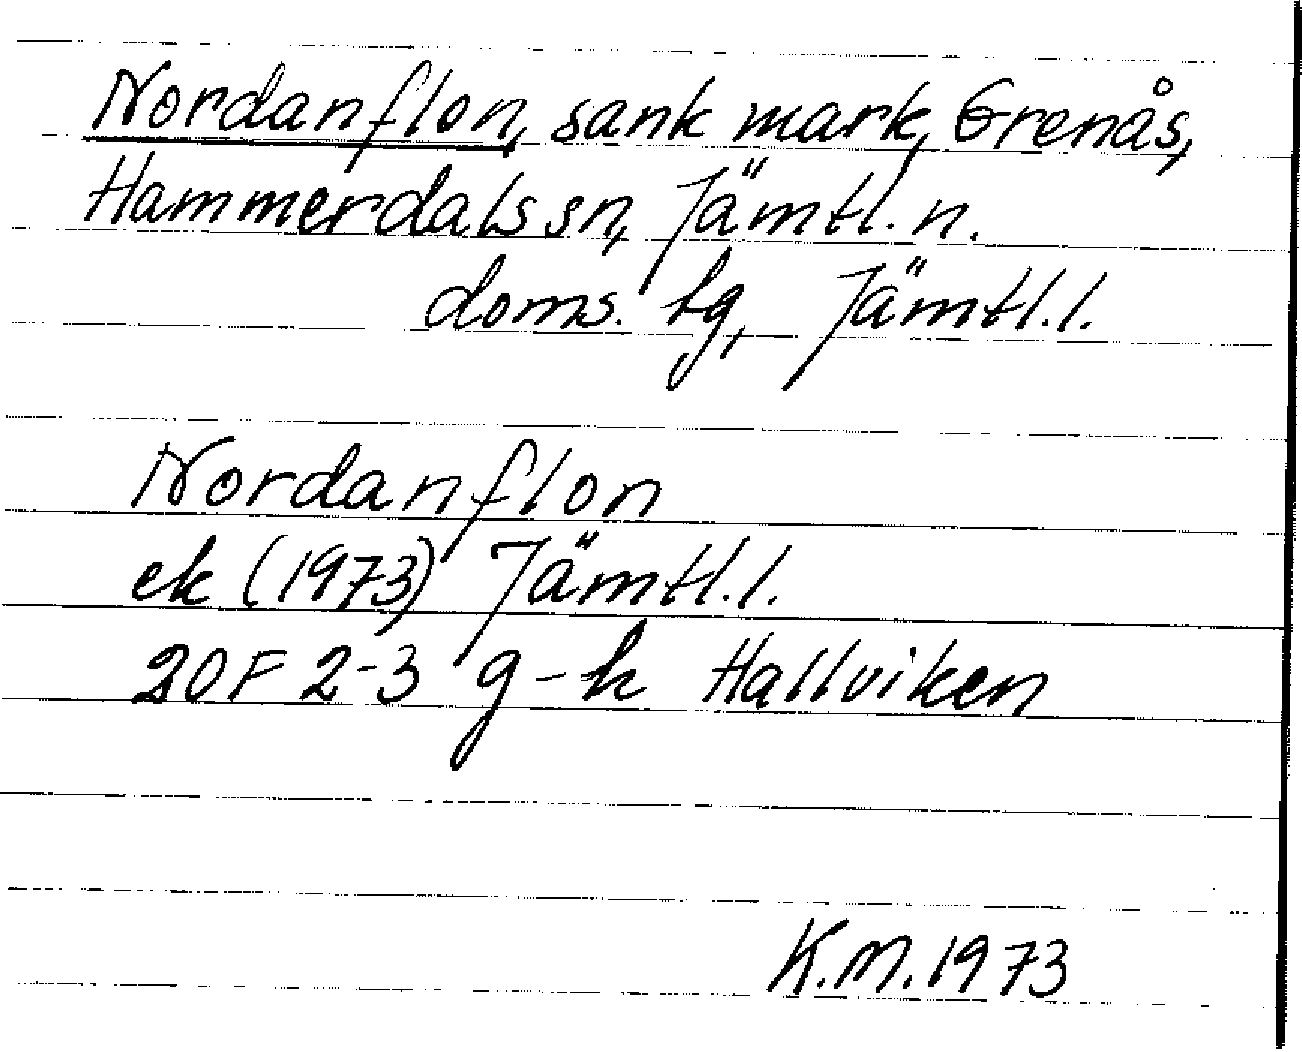 Nordanflon, sank mark, Grenås,
Hammerdals sn, Jämtl. n.
doms. tg, Jämtl. l.
Nordanflon
ek (1973) Jämtl. l.
20F 2-3 g-h Hallviken
K.M. 1973